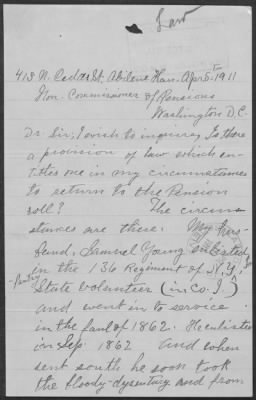 Law
413 N. Cedar St, Abilene Kan. Apr 5th 1911
Hon. Commissioner of Pensions
Washington D.C.
Dr Sir; I wish to inquire, Is there
a provision of law which en-
titles one in any circumstances
to return to the Pension
roll? The circum
stances are these. My hus-
band, Samuel Young enlisted
in the 136 Regiment of N.Y.
State Volunteer (in Co. I)
and went in to service
in the faul of 1862. He enlisted
in Sep. 1862 and when
sent south he soon took
the bloody-dysentury and from